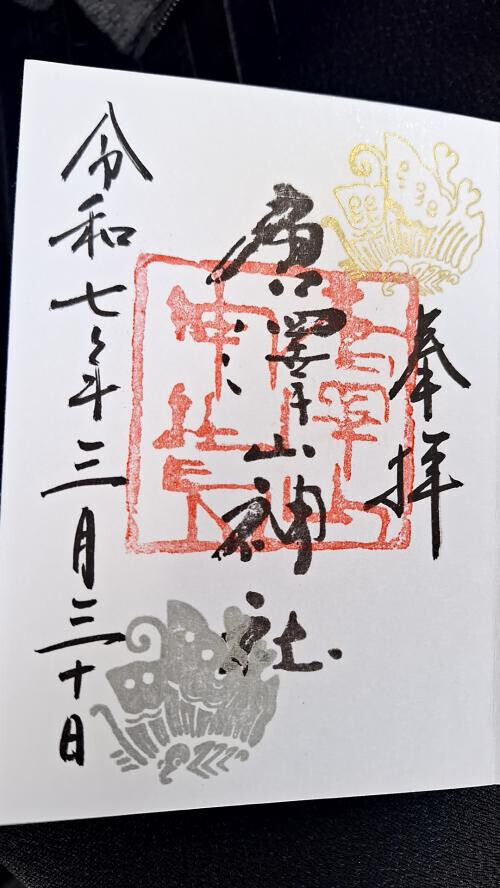 奉拝
唐澤山神社
令和七年三月三十日
唐澤山神社